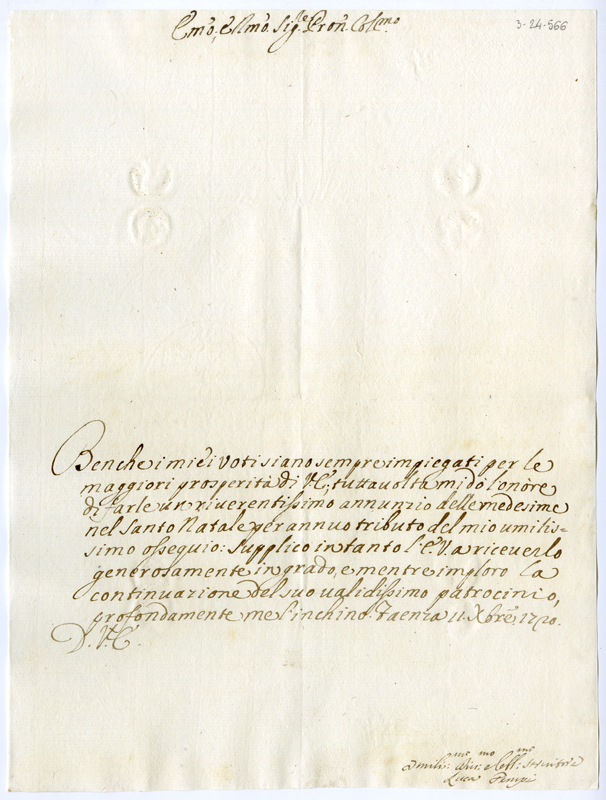 3-24-566
Emo, e Rmo. Sigre. Pron. Colmo.
Benche i miei voti siano sempre impiegati per le
maggiori prosperità di V.E., tuttavolta mi dò l'onore
di farle un riverentissimo annunzio delle medesime
nel Santo Natale per annuo tributo del mio umilis=
simo ossequio: Supplico intanto l'E.V. a riceverlo
generosamente in grado, e mentre imploro la
continuazione del suo validissimo patrocinio,
profondamente me l'inchino. Faenza 11. Xbre. 1720.
D. V.E.
Umilis:me Div:mo Obb:mo Servitore
Luca